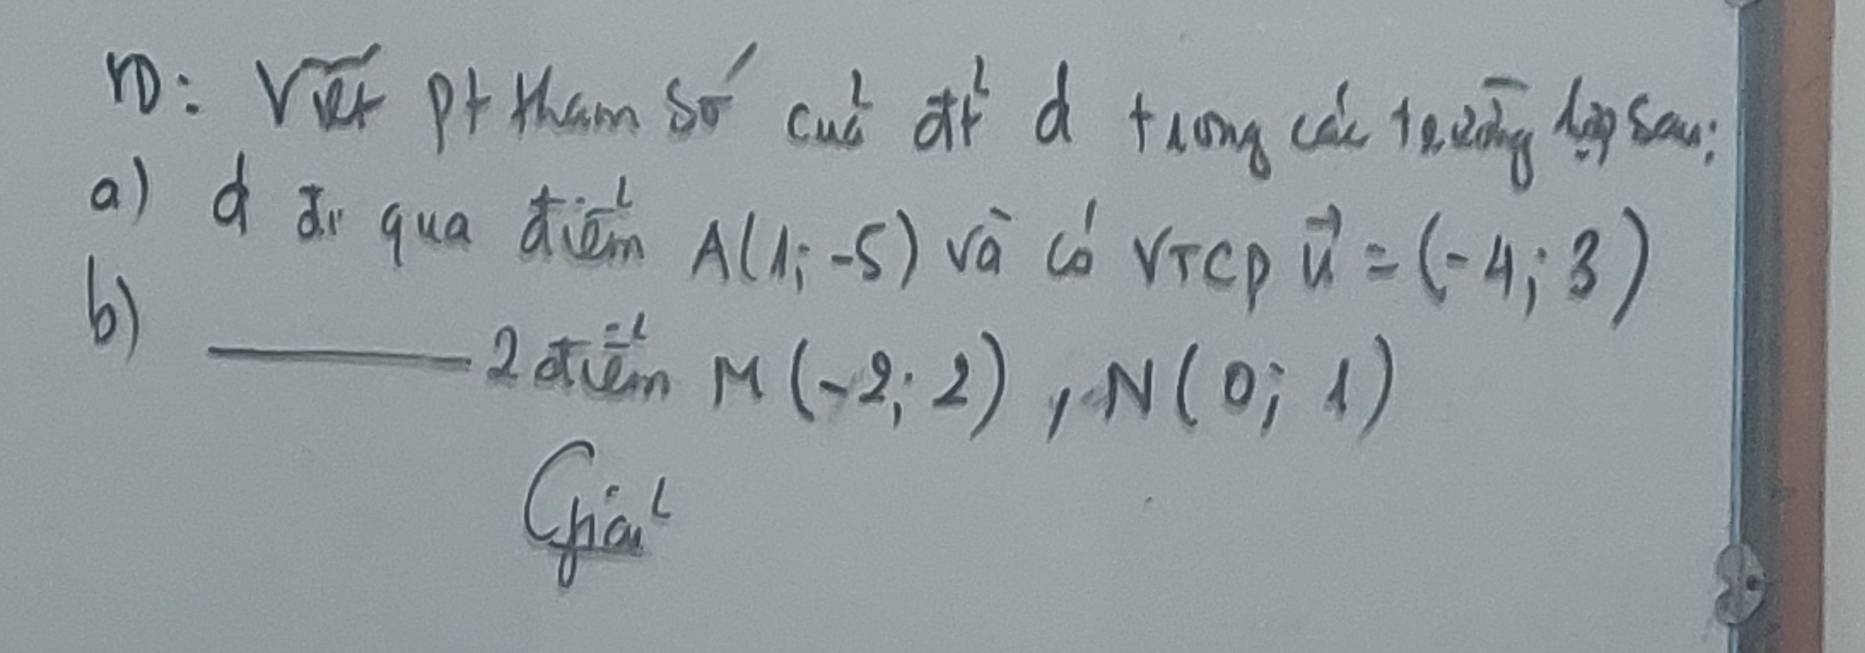 VD: Viết pt tham số của đt d trong các trường hợp sau:
a) d đi qua điểm A(1; -5) và có VTCP u⃗ = (-4; 3)
b) ——— 2 điểm M (-2; 2), N (0; 1)
Giải